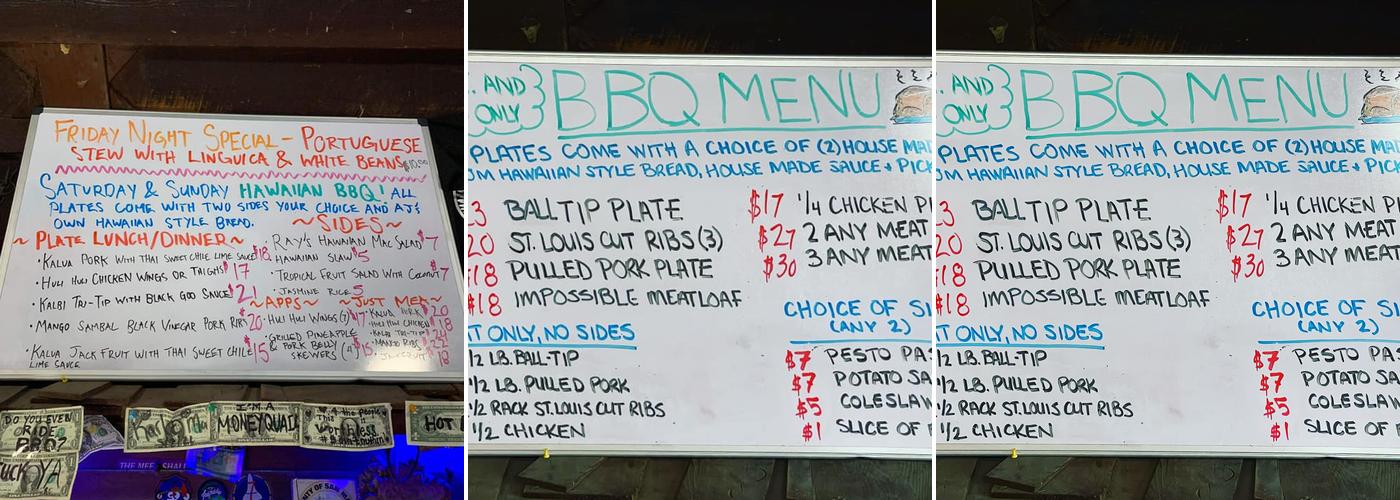 FRIDAY NIGHT SPECIAL - PORTUGUESE
STEW WITH LINGUICA & WHITE BEANS $10.00
SATURDAY & SUNDAY HAWAIIAN BBQ! ALL
PLATES COME WITH TWO SIDES YOUR CHOICE AND AJ'S
OWN HAWAIIAN STYLE BREAD.
~ PLATE LUNCH/DINNER ~
• KALUA PORK WITH THAI SWEET CHILE LIME SAUCE $18
• HULI HULI CHICKEN WINGS OR THIGHS $17
• KALBI TRI-TIP WITH BLACK GOO SAUCE $21
• MANGO SAMBAL BLACK VINEGAR PORK RIBS $20
• KALUA JACK FRUIT WITH THAI SWEET CHILE $15
LIME SAUCE
~ SIDES ~
• RAY'S HAWAIIAN MAC SALAD $7
• HAWAIIAN SLAW $5
• TROPICAL FRUIT SALAD WITH COCONUT $7
• JASMINE RICE 5
~ APPS ~
• HULI HULI WINGS (7) $17
• GRILLED PINEAPPLE
& PORK BELLY
SKEWERS (4) $15
~ JUST MEAT ~
• KALUA PORK $20
• HULI HULI CHICKEN $18
• KALBI TRI-TIP
• MANGO RIBS
DO YOU EVEN
RIDE
BRO?
I'M A
MONEYQUAD
HOT
. AND
ONLY
BBQ MENU
PLATES COME WITH A CHOICE OF (2) HOUSE MAD
OM HAWAIIAN STYLE BREAD, HOUSE MADE SAUCE + PICK
3 BALL TIP PLATE
20 ST. LOUIS CUT RIBS (3)
$18 PULLED PORK PLATE
$18 IMPOSSIBLE MEATLOAF
$17 1/4 CHICKEN PL
$27 2 ANY MEAT
$30 3 ANY MEAT
T ONLY, NO SIDES
1/2 LB. BALL-TIP
1/2 LB. PULLED PORK
1/2 RACK ST. LOUIS CUT RIBS
1/2 CHICKEN
CHOICE OF SI
(ANY 2)
$7 PESTO PAS
$7 POTATO SA
$5 COLESLAW
$1 SLICE OF
. AND
ONLY
BBQ MENU
PLATES COME WITH A CHOICE OF (2) HOUSE MAD
OM HAWAIIAN STYLE BREAD, HOUSE MADE SAUCE + PICK
3 BALL TIP PLATE
20 ST. LOUIS CUT RIBS (3)
$18 PULLED PORK PLATE
$18 IMPOSSIBLE MEATLOAF
$17 1/4 CHICKEN PL
$27 2 ANY MEAT
$30 3 ANY MEAT
T ONLY, NO SIDES
1/2 LB. BALL-TIP
1/2 LB. PULLED PORK
1/2 RACK ST. LOUIS CUT RIBS
1/2 CHICKEN
CHOICE OF SI
(ANY 2)
$7 PESTO PAS
$7 POTATO SA
$5 COLESLAW
$1 SLICE OF